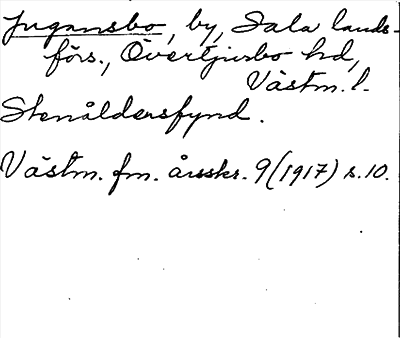 Jugansbo, by, Sala lands-
förs., Övertjurbo hd,
Västm. l.
Stenåldersfynd.
Västm. fm. årsskr. 9 (1917) s. 10.